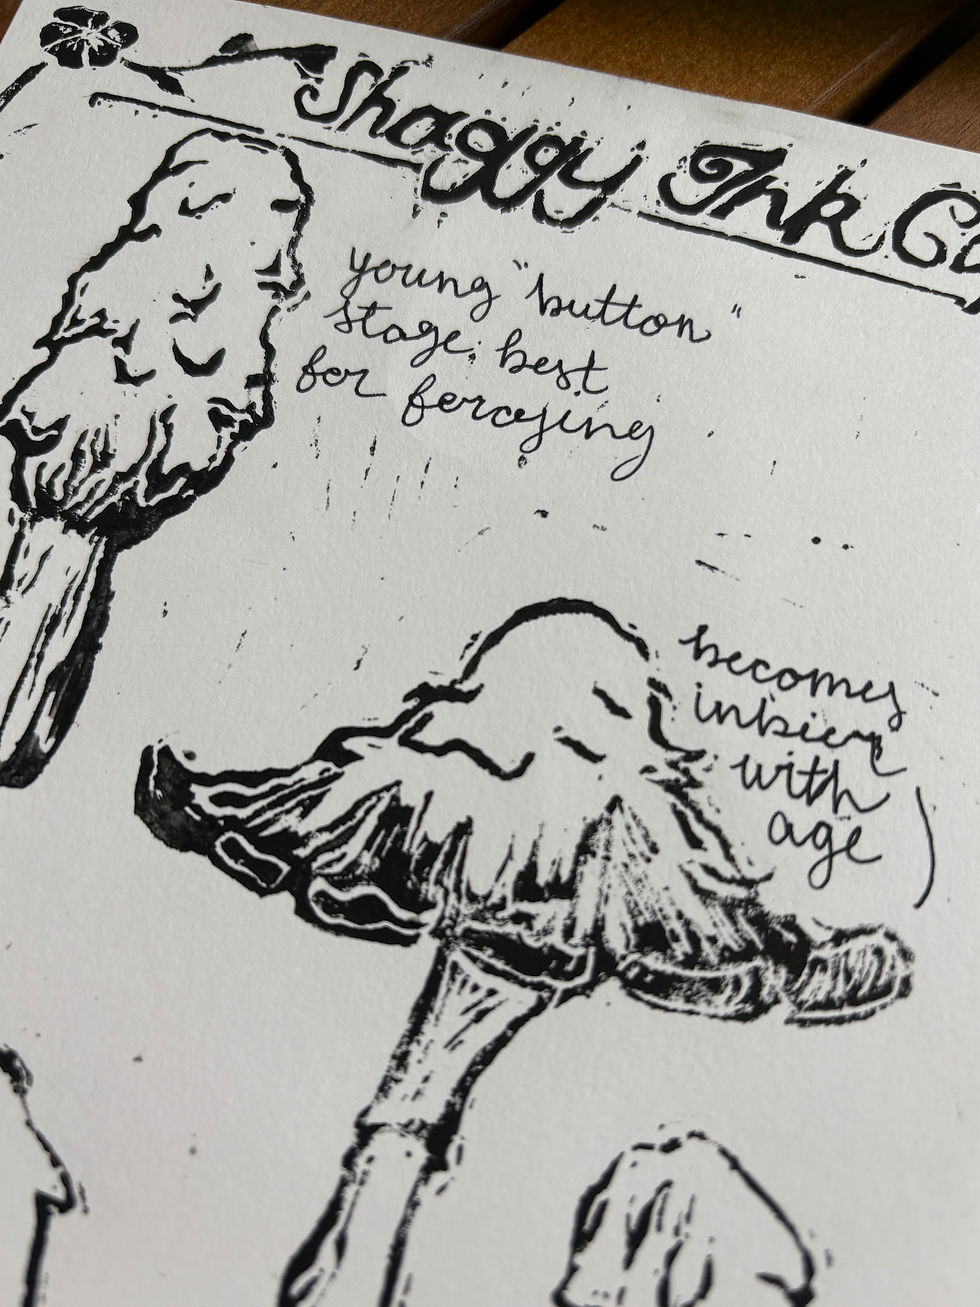 Shaggy Ink
young "button"
stage: best
for foraging
becomes
inkier
with
age